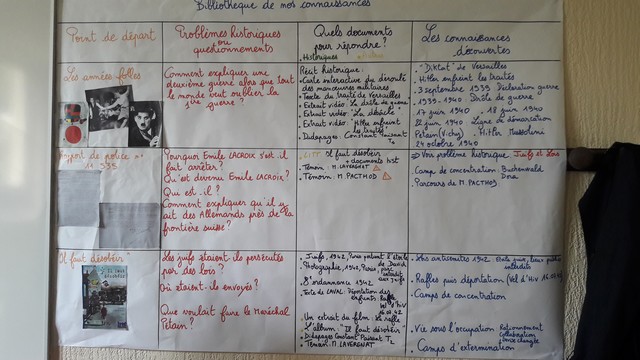 Bibliothèque de nos connaissances
Point de départ
Problèmes historiques
ou
questionnements
Quels documents
pour répondre ?
Historiques
Les connaissances
découvertes
Les années folles
Comment expliquer une
deuxième guerre alors que tout
le monde veut oublier la
1ère guerre ?
Récit historique :
Carte interactive du déroulé
des manoeuvres militaires
Texte du traité de Versailles
Extrait vidéo "La drôle de guerre"
Extrait vidéo "La débâcle"
Extrait vidéo "Hitler enfreint
les traités"
Didapages : Constant Paisant
T2
"Diktat" de Versailles
Hitler enfreint les traités
3 septembre 1939 Déclaration guerre
1939-1940 Drôle de guerre
17 juin 1940 18 juin 1940
22 juin 1940 Ligne de démarcation
Petain (Vichy) Hitler Mussolini
24 octobre 1940
Rapport de police n°
11 535
Pourquoi Emile LACROIX s'est-il
fait arrêter ?
Qu'est devenu Emile LACROIX ?
Qui est-il ?
Comment expliquer qu'il y
ait des Allemands près de la
frontière suisse ?
Il faut désobéir
+ documents hist
Témoin : M. LAVERGNAT
Témoin : M PACTHOD
Voir problème historique Juifs et Lois
Camp de concentration : Buchenwald
Dora
Parcours de M. PACTHOD
"Il faut désobéir"
Les juifs étaient-ils persécutés
par des lois ?
Où étaient-ils envoyés ?
Que voulait faire le Maréchal
Petain ?
Juifs, 1942, Paris portant l'étoile
de David
Photographie, 1942, Paris, parc
interdit
aux juifs
L'ordonnance 1942
Texte de LAVAL : Déportation des
enfants Rafle
Vel d'Hiv
16.07.42
Un extrait du film : La rafle
L'album : "Il faut désobéir"
Didapages Constant Paisant T2
Témoin : M. LAVERGNAT
Lois antisémites 1942
interdits
Rafles puis déportation (Vel d'Hiv 16.07.42)
Camps de concentration
Vie sous l'occupation Rationnement
collaboration
Camps d'extermination